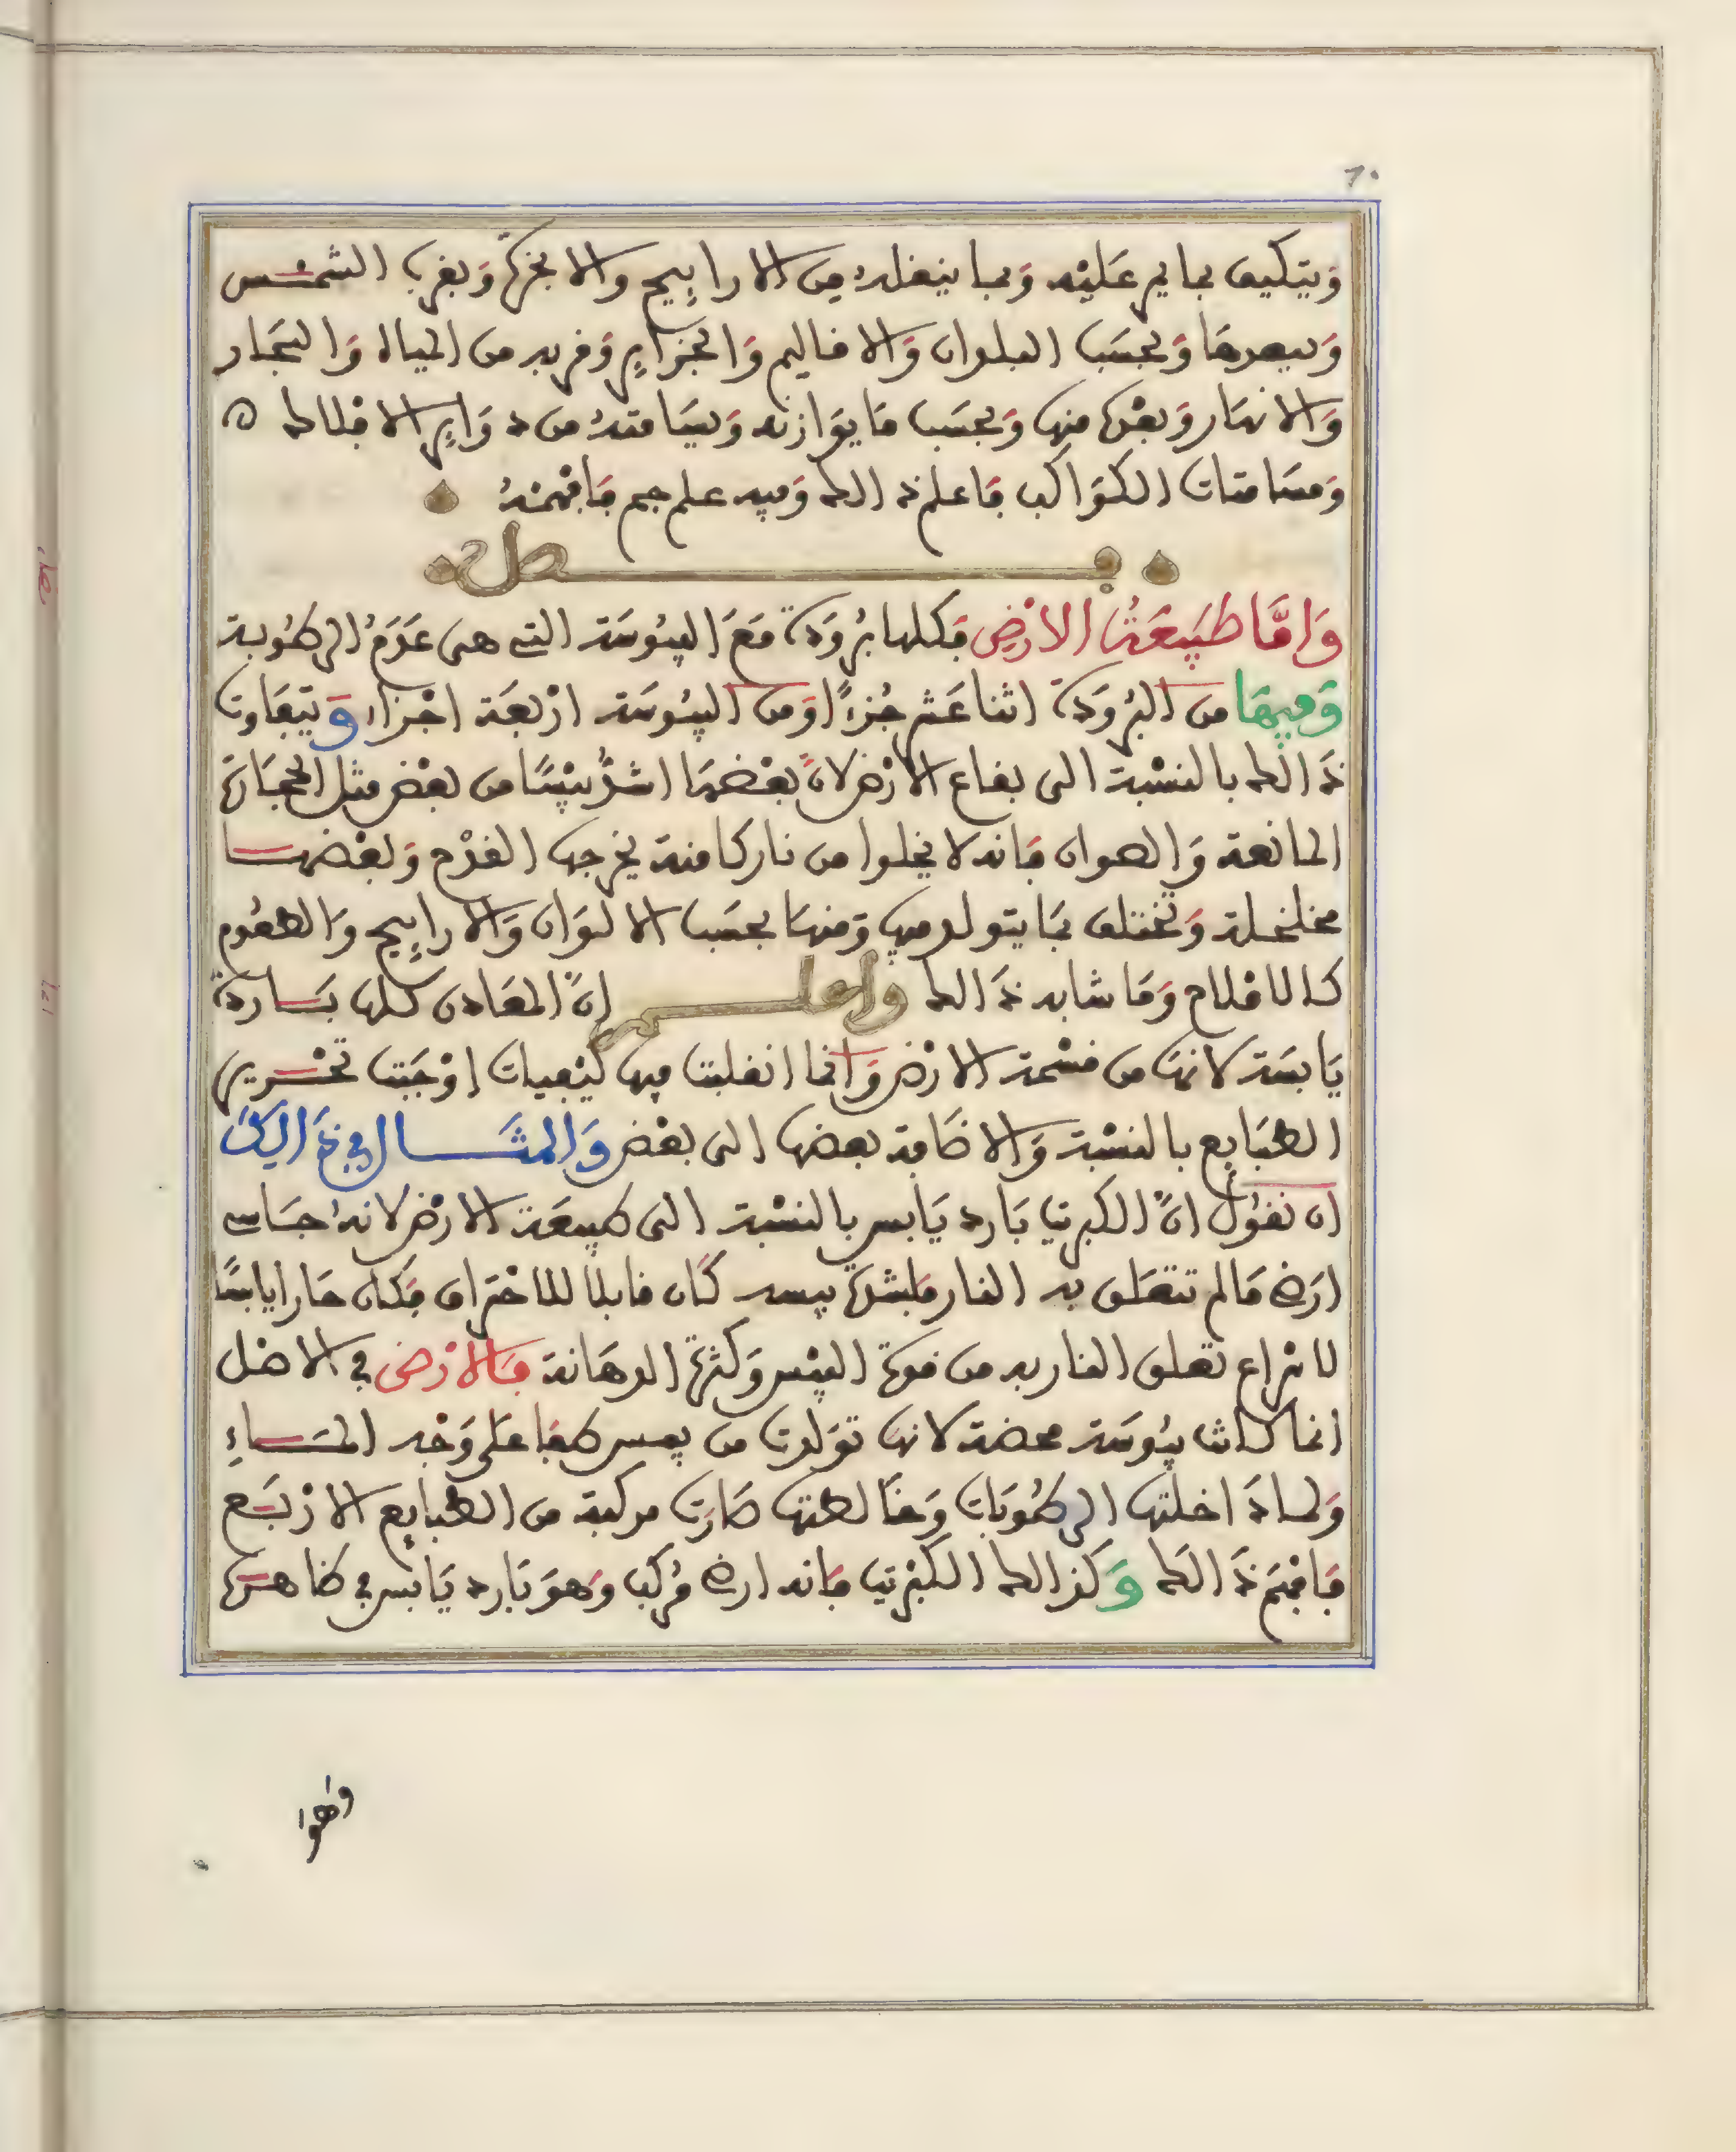 ٦٠
وَيتكيف بما يمر عَليْه وَبما ينقله من الارايح والابخرة وَبقرب الشمس
وَبعدهَا وَبحسَب البلدان وَالاقاليم وَالجزاير وَقربه من المياه وَالبحَار
وَالانهَار وَبعْده منها وَبحسَب مَا يوَازنه وَيسَامته من دوَاير الافلاك ه
وَمسَامتات الكوَاكب فاعلم ذالك وَفيه علم جم فَافهمه
فصل
وَامَّا طبَيعَةُ الارْضِ فَكلها برُودَة مَعَ اليبُوسَة التي هى عَدَمُ الرطُوبة
وَفيهَا من البرُودَة اثنا عَشر جُزءًا وَمن اليبُوسَة ارْبعَة اجْزاء وَيتفَاوت
ذَالك بالنسْبة الى بقاع الارْض لانَّ بعْضهَا اشدُّ يبْسًا من بعْض مثل الحجَارَة
المانعة وَالصوان فَانه لا يخلوا من نار كامنة يخرجها القدْح وَبعْضهَا
مخلخلة وَتختلف بمَا يتولد فيها وَمنهَا بحسَب الالوَان وَالارايح وَالطعُوم
كالاملاح وَمَا شابه ذَالك واعلم انَّ المعَادن كلها بَاردَة
يَابسَة لانهَا من قسْمة الارْض وَانما انقلبت فيها كيْفيات اوْجَبت تحْرير
الطبَايع بالنسْبة وَالاضَافة بعضها الى بعْض وَالمثَال في ذَالك
ان نقوُل انَّ الكبريت بَارد يَابس بالنسْبة الى طبيعَة الارْض لانهُ حجَاس
ارض مَا لم تتعَلق به النار فلشدة يبسه كَان قابلا للاحْتراق فَكان حَارا يابسًا
لانراع تعلق النار به من قوة اليبْس وَكثرة الدهَانة فَالارْض في الاصْل
انما كانت يبُوسَة محضة لانهَا توَلدت من يبس طفَا عَلى وَجْه المَاءِ
وَلما دَاخلتها الرطُوبَات وَخَالطتها صَارَت مركبة من الطبايع الارْبَع
فَافهَم ذَالك وَكذالك الكبْريت فَانه ارض مُركب وَهوَ بَارد يَابس في ظاهرهَا
وهوا